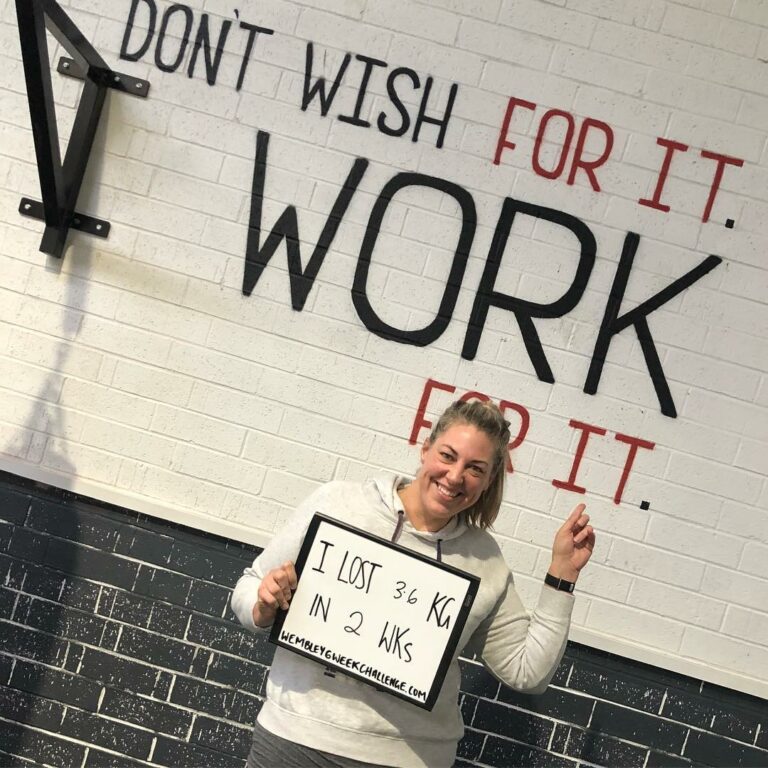 DON'T WISH FOR IT.
WORK
FOR IT.
I LOST 3.6 KG
IN 2 WKS
WEMBLEY6WEEKCHALLENGE.COM